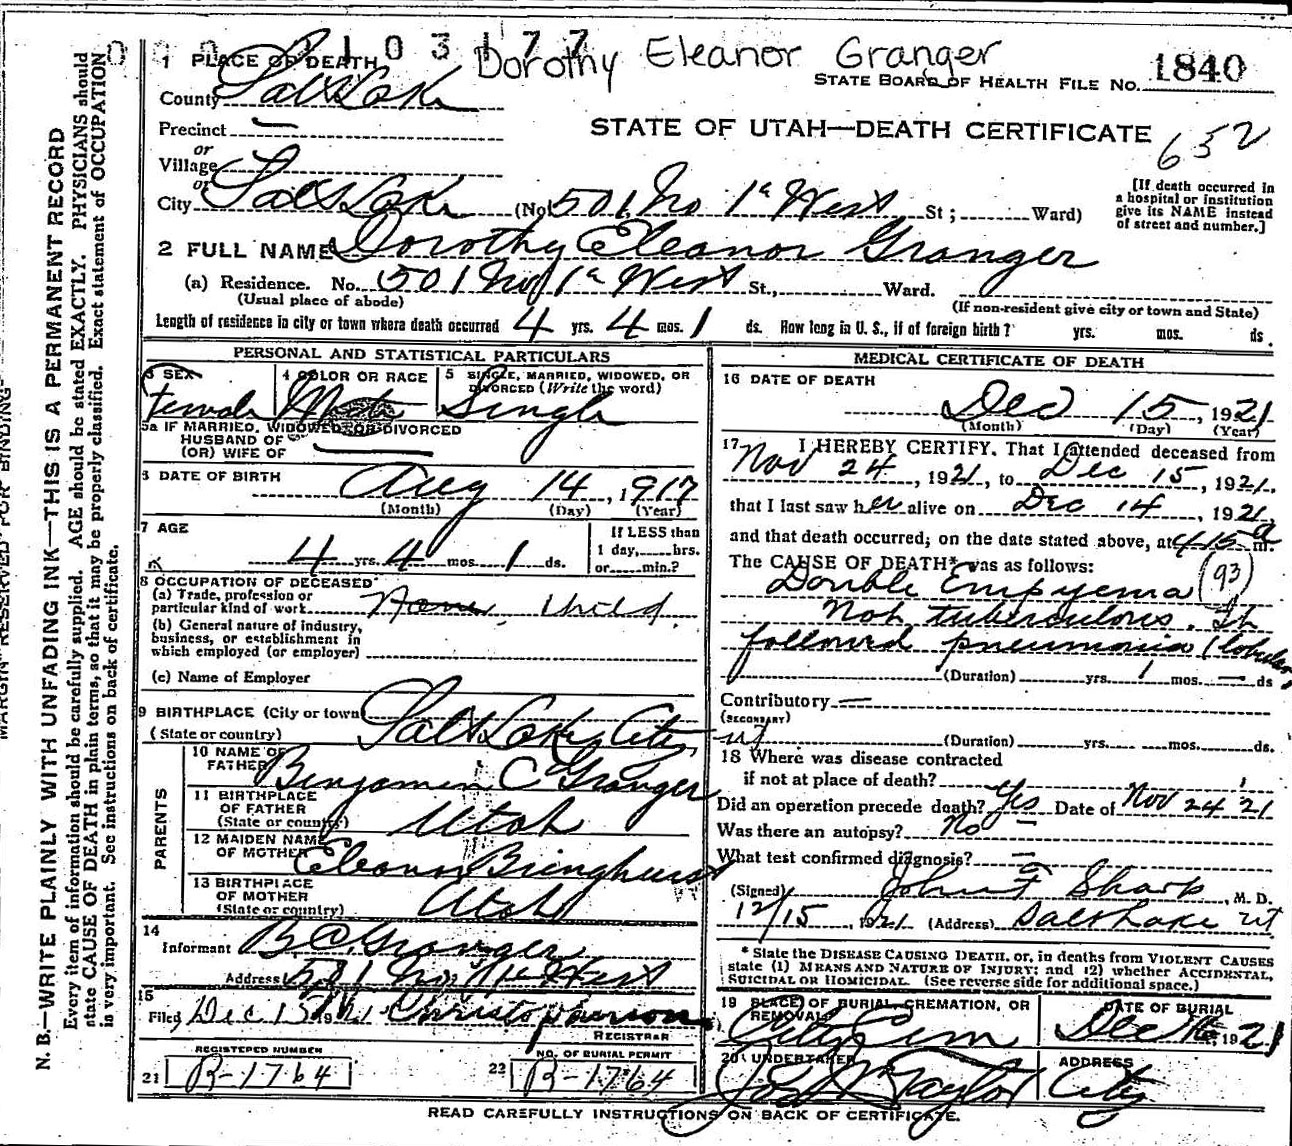 0 0 0 0 1 0 3 1 7 7 Dorothy Eleanor Granger
1 PLACE OF DEATH
STATE BOARD OF HEALTH FILE NO. 1840
County Salt Lake
Precinct —
STATE OF UTAH—DEATH CERTIFICATE 652
or
Village
or
City Salt Lake (No. 501 No 1st West St; Ward)
[If death occurred in
a hospital or institution
give its NAME instead
of street and number.]
2 FULL NAME Dorothy Eleanor Granger
(a) Residence. No. 501 No 1st West St., Ward.
(Usual place of abode) (If non-resident give city or town and State)
Length of residence in city or town where death occurred 4 yrs. 4 mos. 1 ds. How long in U. S., if of foreign birth? yrs. mos. ds.
PERSONAL AND STATISTICAL PARTICULARS
3 SEX Female
4 COLOR OR RACE White
5 SINGLE, MARRIED, WIDOWED, OR
DIVORCED (Write the word)
Single
5a IF MARRIED, WIDOWED OR DIVORCED
HUSBAND OF
(OR) WIFE OF
6 DATE OF BIRTH Aug 14, 1917
(Month) (Day) (Year)
7 AGE
4 yrs. 4 mos. 1 ds.
If LESS than
1 day, hrs.
or min.?
8 OCCUPATION OF DECEASED
(a) Trade, profession or
particular kind of work None, Child
(b) General nature of industry,
business, or establishment in
which employed (or employer)
(c) Name of Employer
9 BIRTHPLACE (City or town Salt Lake City
(State or country) ut
PARENTS
10 NAME OF
FATHER Benjamin C Granger
11 BIRTHPLACE
OF FATHER
(State or country) Utah
12 MAIDEN NAME
OF MOTHER Eleanor Bringhurst
13 BIRTHPLACE
OF MOTHER
(State or country) Utah
14
Informant B C Granger
Address 501 No. 1st West
15
Filed Dec 15 1921
REGISTRAR
REGISTERED NUMBER
21 B-1764
NO. OF BURIAL PERMIT
22 B-1764
MEDICAL CERTIFICATE OF DEATH
16 DATE OF DEATH
Dec 15, 1921
(Month) (Day) (Year)
17 I HEREBY CERTIFY, That I attended deceased from
Nov 24, 1921, to Dec 15, 1921.
that I last saw her alive on Dec 14, 1921,
and that death occurred, on the date stated above, at 415 a m.
The CAUSE OF DEATH* was as follows:
Double Empyema (93)
Not tuberculous. It
followed pneumonia (lobular)
(Duration) yrs. 1 mos. — ds
Contributory —
(SECONDARY)
(Duration) yrs. mos. ds.
18 Where was disease contracted
if not at place of death?
Did an operation precede death? Yes Date of Nov 24 '21
Was there an autopsy? No —
What test confirmed diagnosis? —
(Signed) John F Sharp, M. D.
12/15, 1921 (Address) Salt Lake ut
* State the DISEASE CAUSING DEATH, or, in deaths from VIOLENT CAUSES
state (1) MEANS AND NATURE OF INJURY; and (2) whether ACCIDENTAL,
SUICIDAL OR HOMICIDAL. (See reverse side for additional space.)
19 PLACE OF BURIAL, CREMATION, OR
REMOVAL
City Cem
DATE OF BURIAL
Dec 16, 1921
20 UNDERTAKER
Jos Wm Taylor
ADDRESS
City
READ CAREFULLY INSTRUCTIONS ON BACK OF CERTIFICATE.
MARGIN RESERVED FOR BINDING
N. B.—WRITE PLAINLY WITH UNFADING INK—THIS IS A PERMANENT RECORD
Every item of information should be carefully supplied. AGE should be stated EXACTLY. PHYSICIANS should
state CAUSE OF DEATH in plain terms, so that it may be properly classified. Exact statement of OCCUPATION
is very important. See instructions on back of certificate.